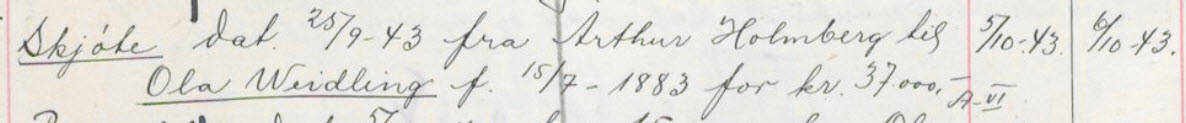 Skjøte dat. 25/9-43 fra Arthur Holmberg til 5/10-43. 6/10-43.
Ola Weidling f. 15/7-1883 for kr. 37.000,- A-VI